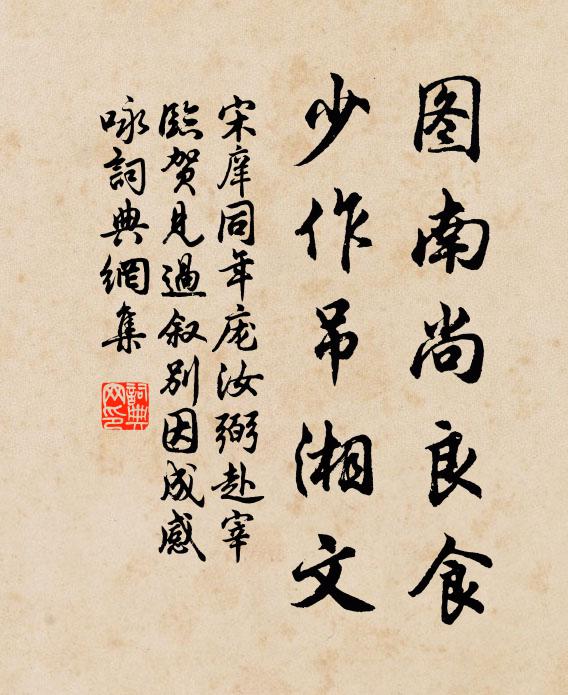 图南尚良食
少作吊湘文
宋庠同年庞汝弼赴宰
临贺见過叙别因成感
咏詞典網集
詞典
网印